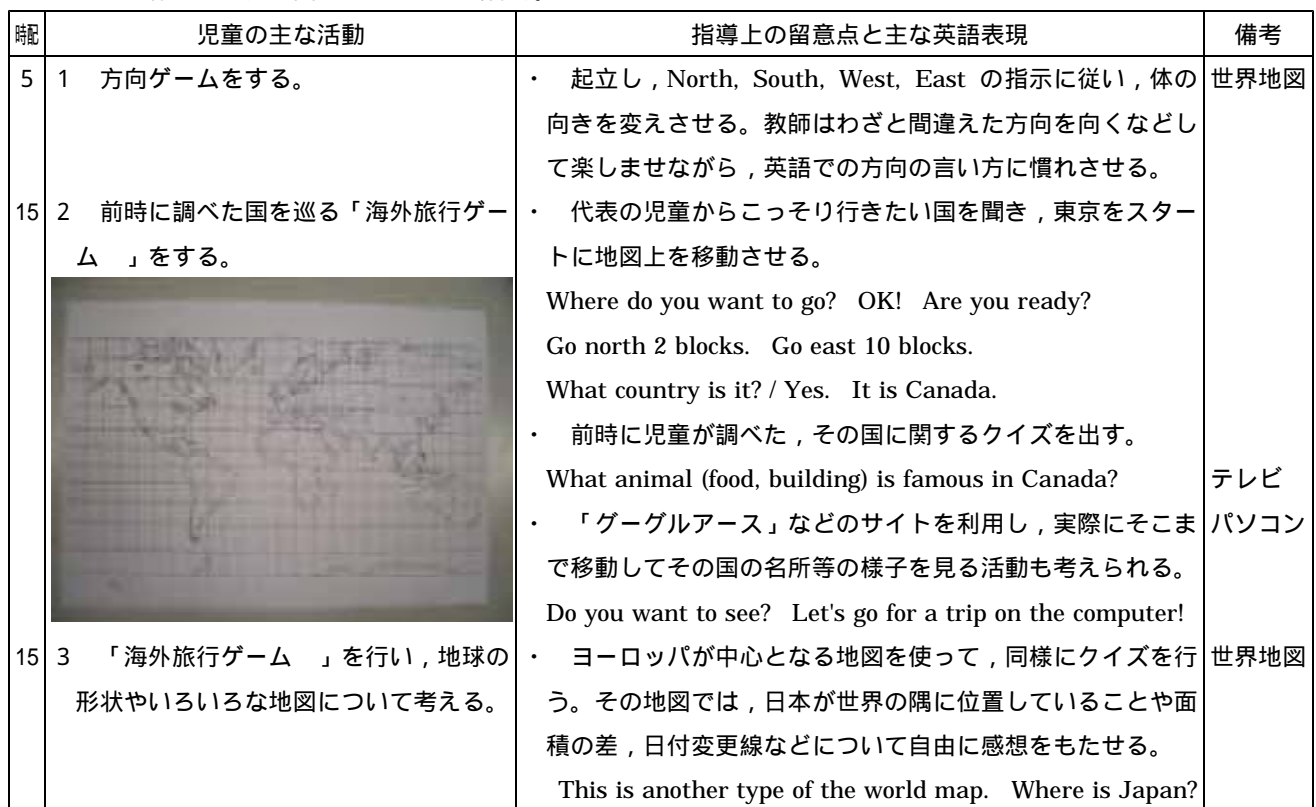 時配 児童の主な活動 指導上の留意点と主な英語表現 備考
5 1 方向ゲームをする。 ・ 起立し，North, South, West, East の指示に従い，体の 世界地図
向きを変えさせる。教師はわざと間違えた方向を向くなどし
て楽しませながら，英語での方向の言い方に慣れさせる。
15 2 前時に調べた国を巡る「海外旅行ゲー ・ 代表の児童からこっそり行きたい国を聞き，東京をスター
ム 」をする。 トに地図上を移動させる。
Where do you want to go? OK! Are you ready?
Go north 2 blocks. Go east 10 blocks.
What country is it? / Yes. It is Canada.
・ 前時に児童が調べた，その国に関するクイズを出す。
What animal (food, building) is famous in Canada? テレビ
・ 「グーグルアース」などのサイトを利用し，実際にそこま パソコン
で移動してその国の名所等の様子を見る活動も考えられる。
Do you want to see? Let's go for a trip on the computer!
15 3 「海外旅行ゲーム 」を行い，地球の ・ ヨーロッパが中心となる地図を使って，同様にクイズを行 世界地図
形状やいろいろな地図について考える。 う。その地図では，日本が世界の隅に位置していることや面
積の差，日付変更線などについて自由に感想をもたせる。
This is another type of the world map. Where is Japan?